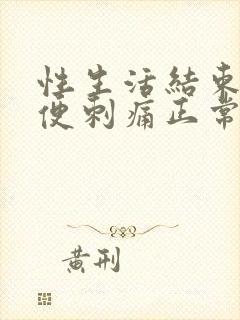 性生活結束
便刺痛正常
黄刑